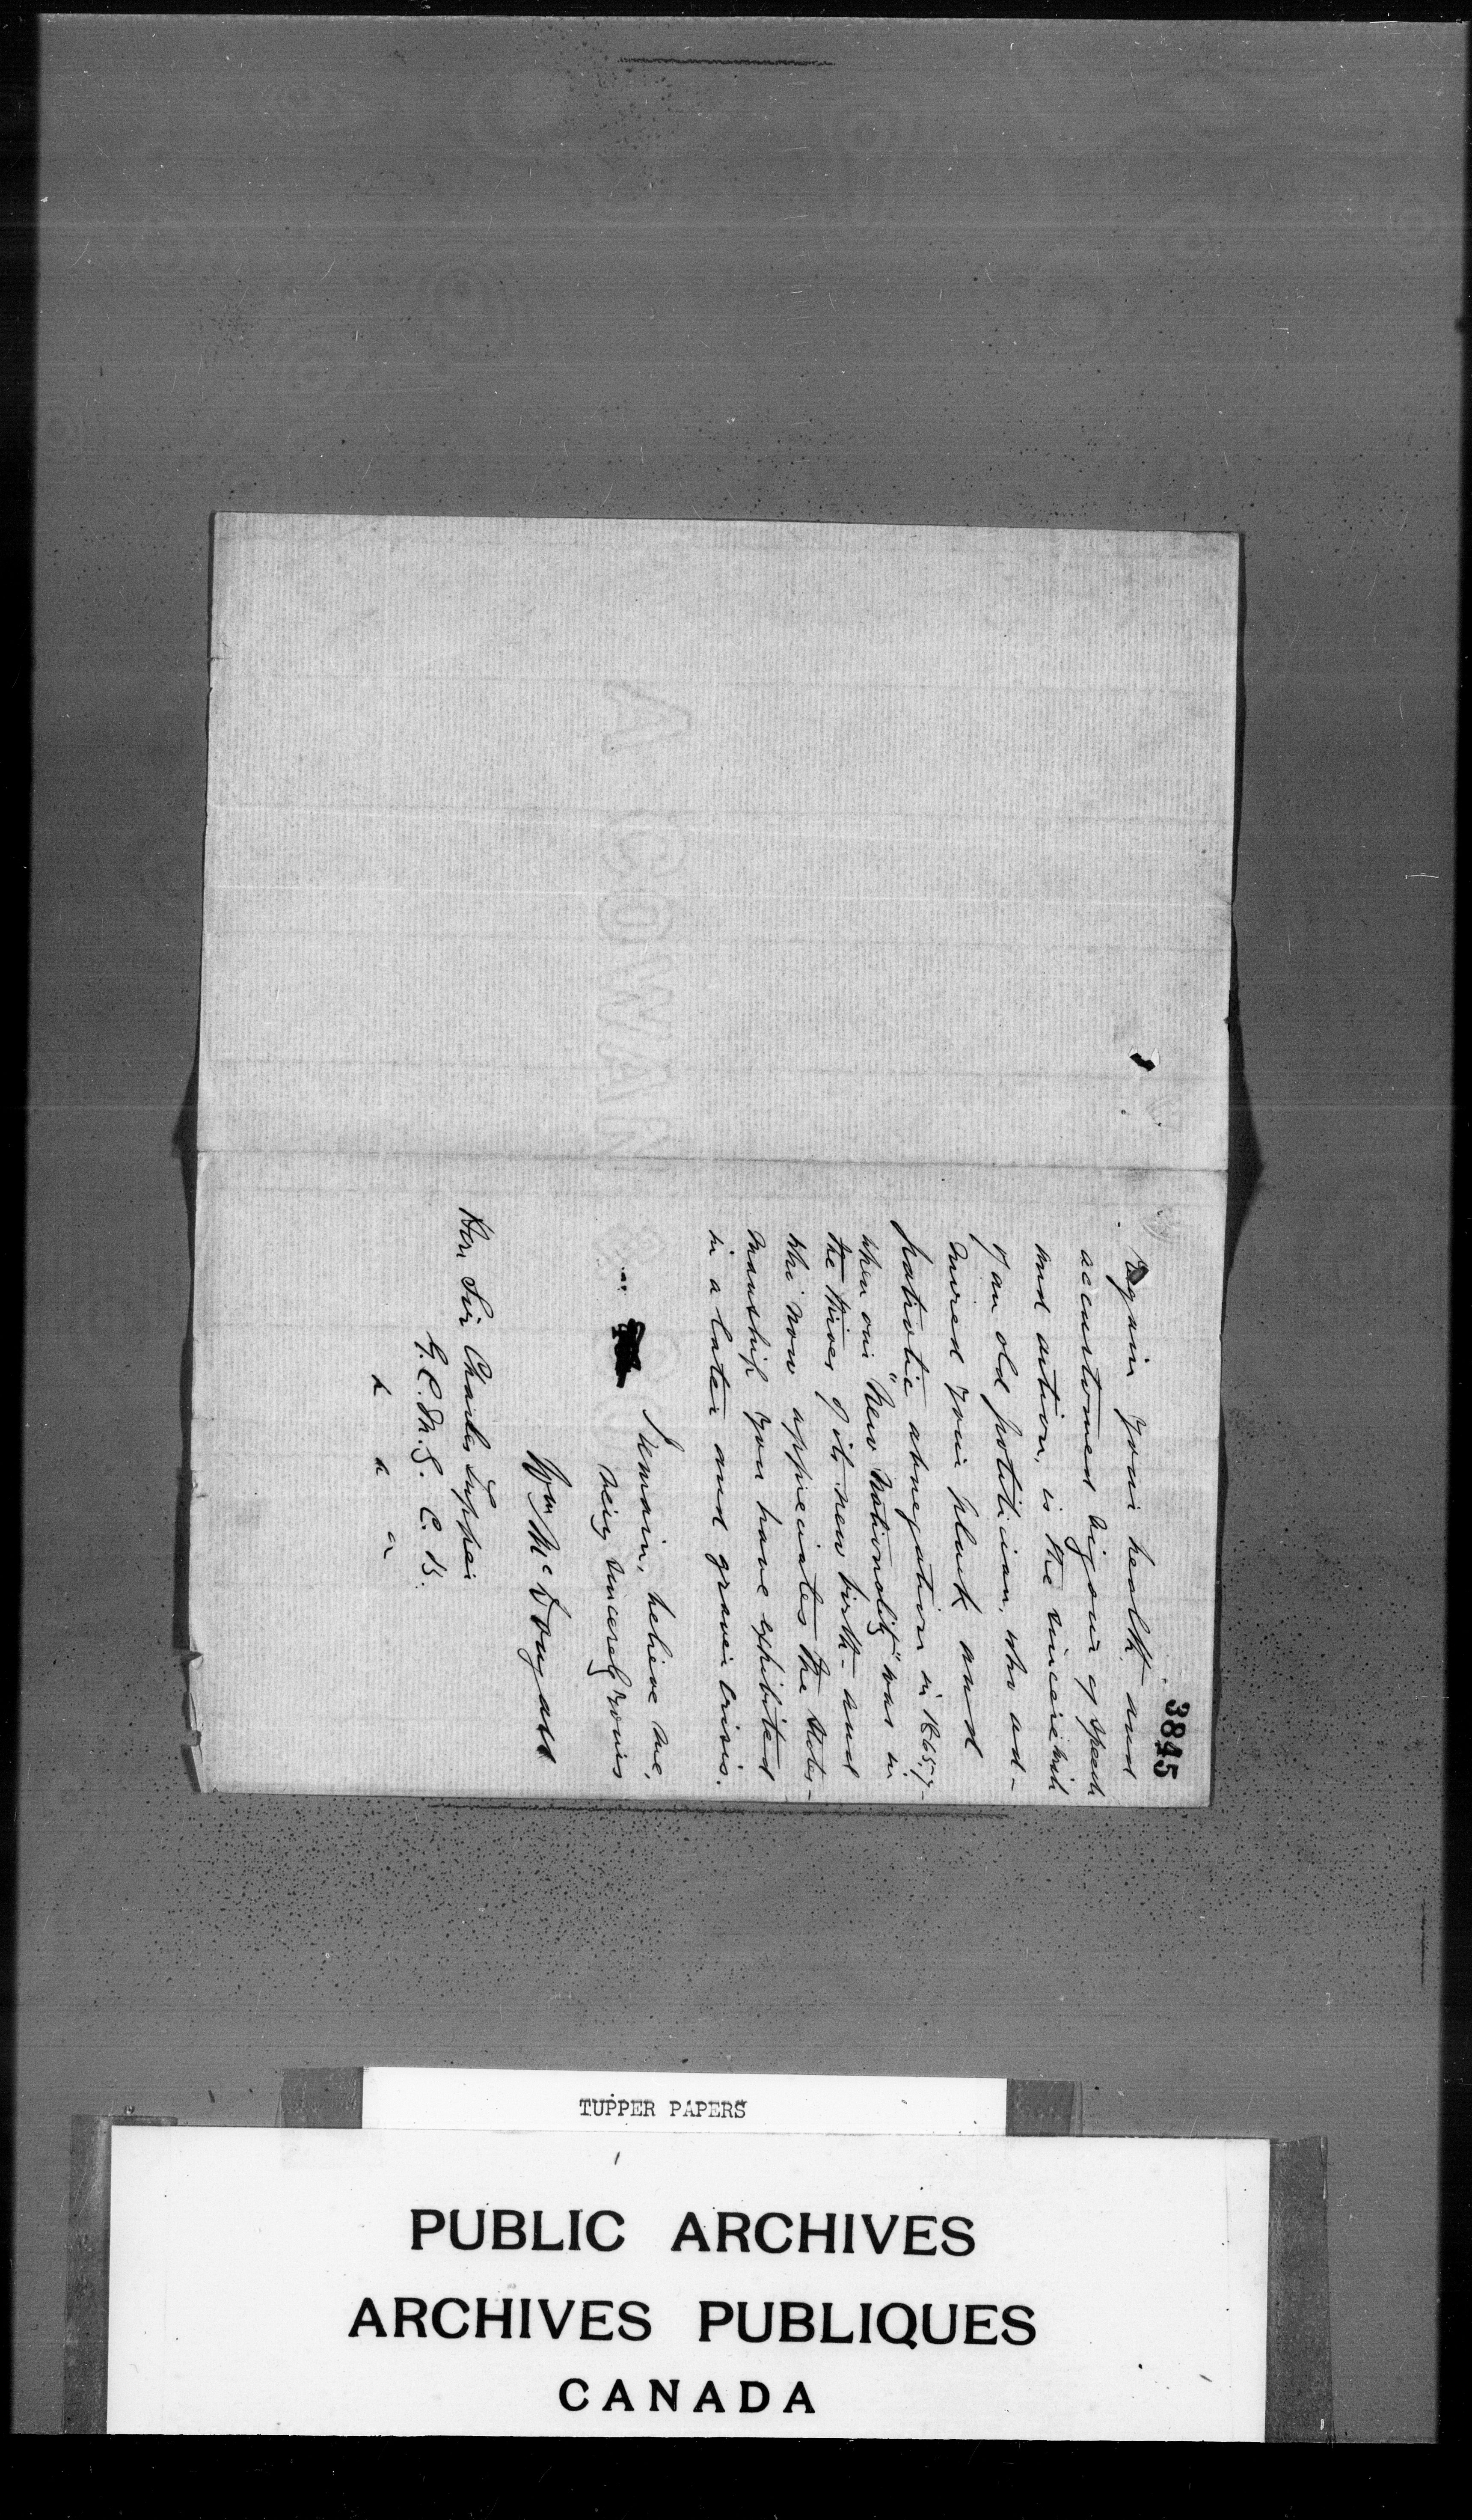 3845
regain your health and
accustomed vigour of speech
and action, is the sincere wish
of an old politician, who ad-
mired your pluck and
patriotic abnegation in 1865-7-
when our "New Nationality" was in
the throes of its new birth - and
who now appreciates the states-
manship you have exhibited
in a later and graver crisis.
I remain, believe me,
Very Sincerely Yours
Wm McDougall
Hon Sir Charles Tupper
G.C.M.G. C.B.
A. COWAN &
TUPPER PAPERS
PUBLIC ARCHIVES
ARCHIVES PUBLIQUES
CANADA